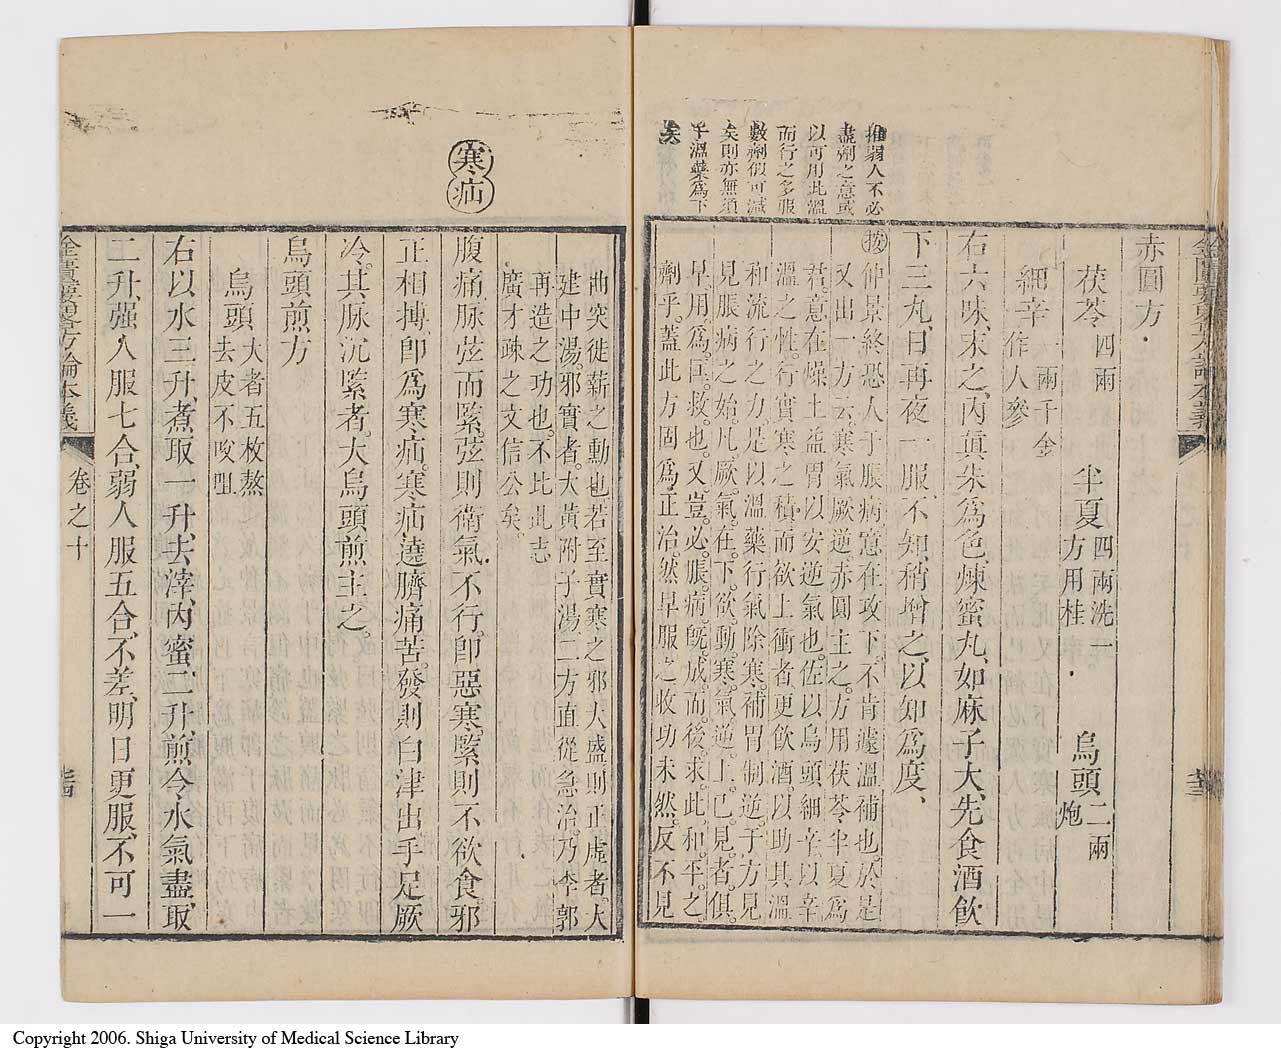 推弱人不必
盡劑之意或
以可用此溫
而行之多服
數劑假可減
矣則亦無須
于溫藥爲下
矣
赤圓方
茯苓四兩 半夏四兩洗一方用桂 烏頭二兩炮
細辛一兩千金作人參
右六味、末之、內眞朱爲色、煉蜜丸、如麻子大、先食酒飲
下三丸、日再夜一服、不知、稍增之、以知爲度、
按仲景終恐人于脹病、意在攻下。不肯遽溫補也。於是
又出一方云、寒氣厥逆、赤圓主之。方用茯苓半夏爲
君、意在燥土益胃以安逆氣也。佐以烏頭細辛、以辛
溫之性。行實寒之積、而欲上衝者、更飲酒、以助其溫
和流行之力、是以溫藥行氣除寒、補胃制逆。于方見
見脹病之始。凡厥。氣在。下。欲。動。寒。氣。逆。上。已。見。者。俱。
早。用。爲。匡。救。也。又。豈。必。脹。病。旣。成。而。後。求。此。和。平。之
劑乎。蓋此方固爲正治、然早服之收功未然。反不見
曲突徙薪之勳也。若至實寒之邪大盛、則正虛者。大
建中湯。邪實者。大黃附子湯。二方直從急治。乃李郭
再造之功也。不比此志
廣才疎之文信公矣。
寒疝
腹痛、脉弦而緊。弦則衛氣不行。卽惡寒。緊則不欲食。邪
正相搏、卽爲寒疝。寒疝、遶臍痛苦。發則白津出、手足厥
冷。其脉沉緊者。大烏頭煎主之。
烏頭煎方
烏頭大者五枚熬去皮不㕮咀
右以水三升、煮取一升、去滓、內蜜二升、煎令水氣盡、取
二升、強人服七合、弱人服五合、不差、明日更服、不可一
金匱要畧方論本義
卷之十